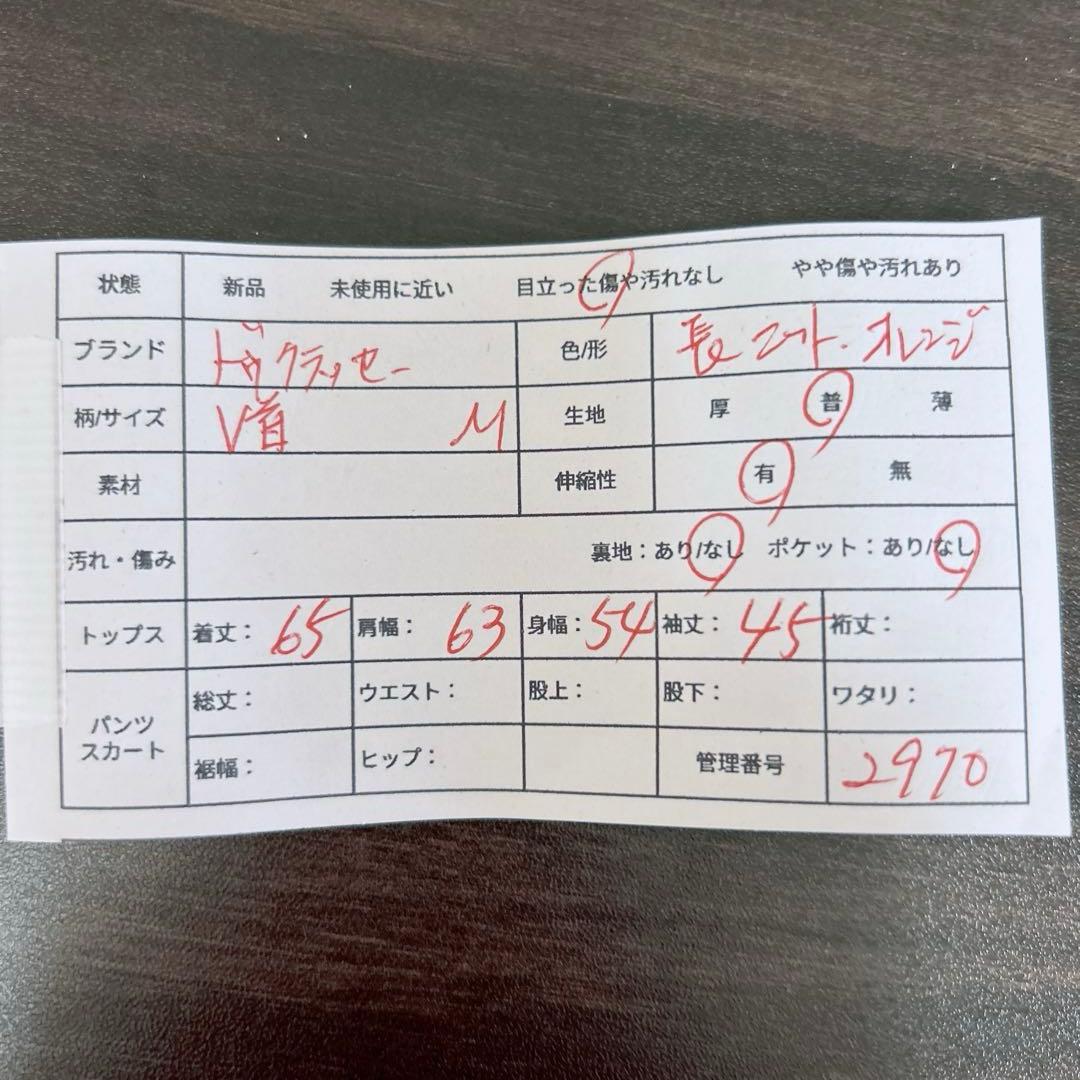 状態 新品 未使用に近い 目立った傷や汚れなし やや傷や汚れあり
ブランド ドゥクラッセー 色/形 長ニット.オレンジ
柄/サイズ V首 M 生地 厚 普 薄
素材 伸縮性 有 無
汚れ・傷み 裏地：あり/なし ポケット：あり/なし
トップス 着丈：65 肩幅：63 身幅：54 袖丈：45 裄丈：
パンツ スカート 総丈： ウエスト： 股上： 股下： ワタリ：
裾幅： ヒップ： 管理番号 2970